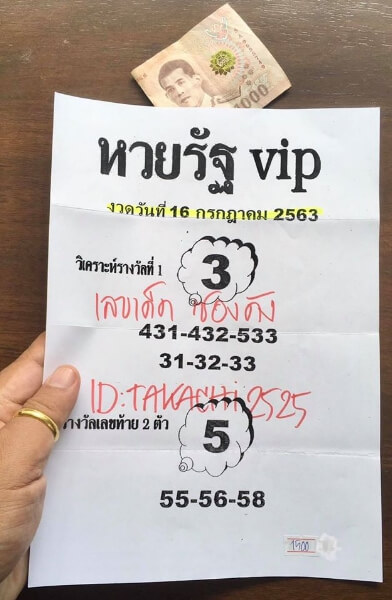 1000
หวยรัฐ vip
งวดวันที่ 16 กรกฎาคม 2563
วิเคราะห์รางวัลที่ 1
3
เลขเด็ด ซองดัง
431-432-533
31-32-33
ID:TAKAEHI2525
รางวัลเลขท้าย 2 ตัว
5
55-56-58
1500